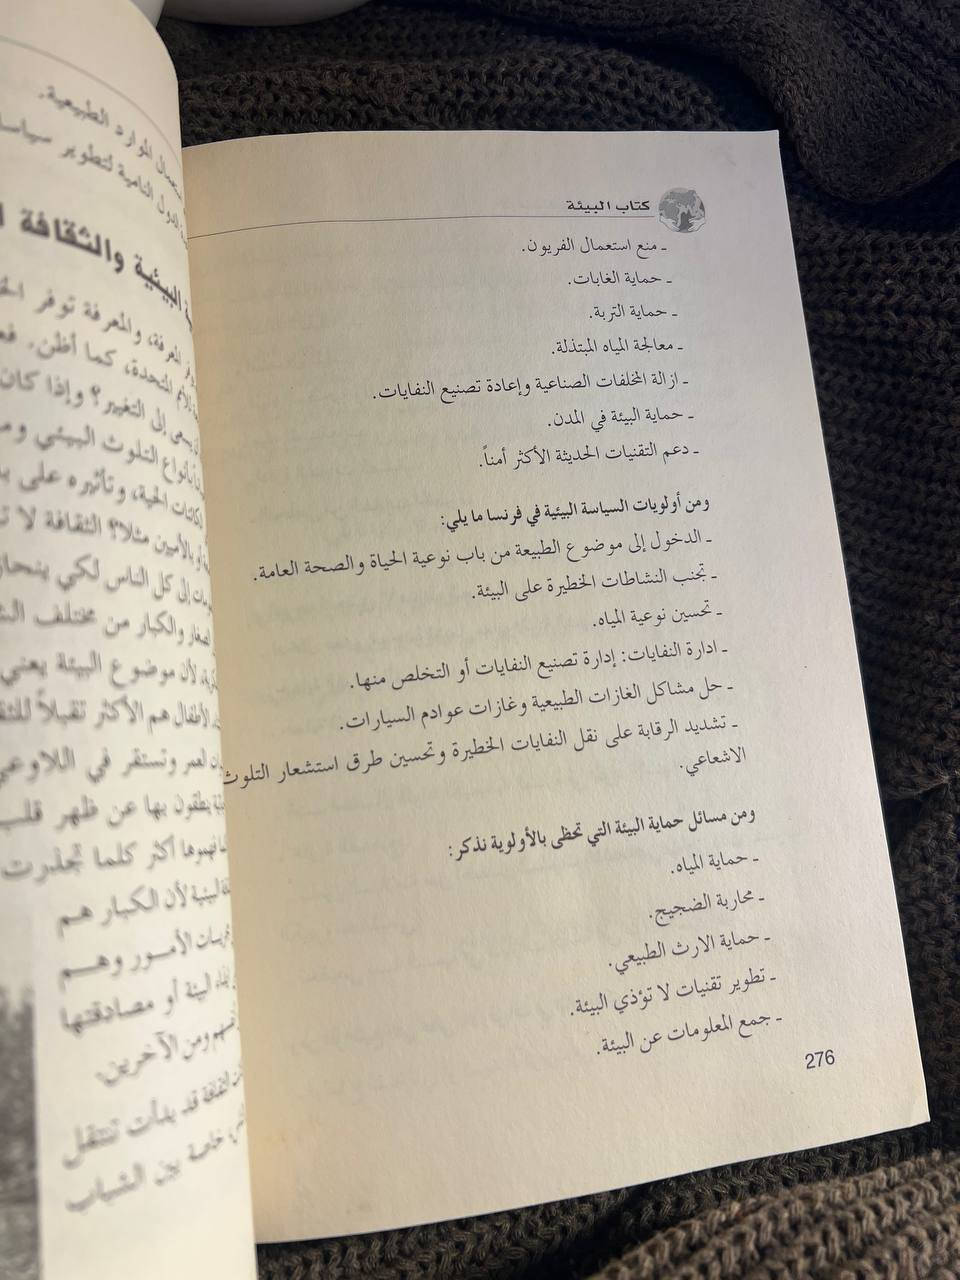 كتاب البيئة
ـ منع استعمال الفريون.
ـ حماية الغابات.
ـ حماية التربة.
ـ معالجة المياه المبتذلة.
ـ ازالة المخلفات الصناعية وإعادة تصنيع النفايات.
ـ حماية البيئة في المدن.
ـ دعم التقنيات الحديثة الأكثر أمناً.
ومن أولويات السياسة البيئية في فرنسا ما يلي:
ـ الدخول إلى موضوع الطبيعة من باب نوعية الحياة والصحة العامة.
ـ تجنب النشاطات الخطيرة على البيئة.
ـ تحسين نوعية المياه.
ـ ادارة النفايات: إدارة تصنيع النفايات أو التخلص منها.
ـ حل مشاكل الغازات الطبيعية وغازات عوادم السيارات.
ـ تشديد الرقابة على نقل النفايات الخطيرة وتحسين طرق استشعار التلوث
الاشعاعي.
ومن مسائل حماية البيئة التي تحظى بالأولوية نذكر:
ـ حماية المياه.
ـ محاربة الضجيج.
ـ حماية الارث الطبيعي.
ـ تطوير تقنيات لا تؤذي البيئة.
ـ جمع المعلومات عن البيئة.
276
الموارد الطبيعية.
الدول النامية لتطوير
البيئية والثقافة
المعرفة، والمعرفة توفر
المتحدة، كما أظن.
يسعى إلى التغيير؟ وإذا كان
بأنواع التلوث البيئي
الحية، وتأثيره على
بالأميين مثلا؟ الثقافة لا
إلى كل الناس لكي
والكبار من مختلف
لأن موضوع البيئة يعني
الأطفال هم الأكثر تقبلاً
العمر وتستقر في
ينطقون بها عن ظهر قلب
أكثر كلما تجذرت
لأن الكبار هم
الأمور وهم
أو مصادقتها
ومن الآخرين.
الثقافة قد بدأت تنتقل
خاصة بين الشباب